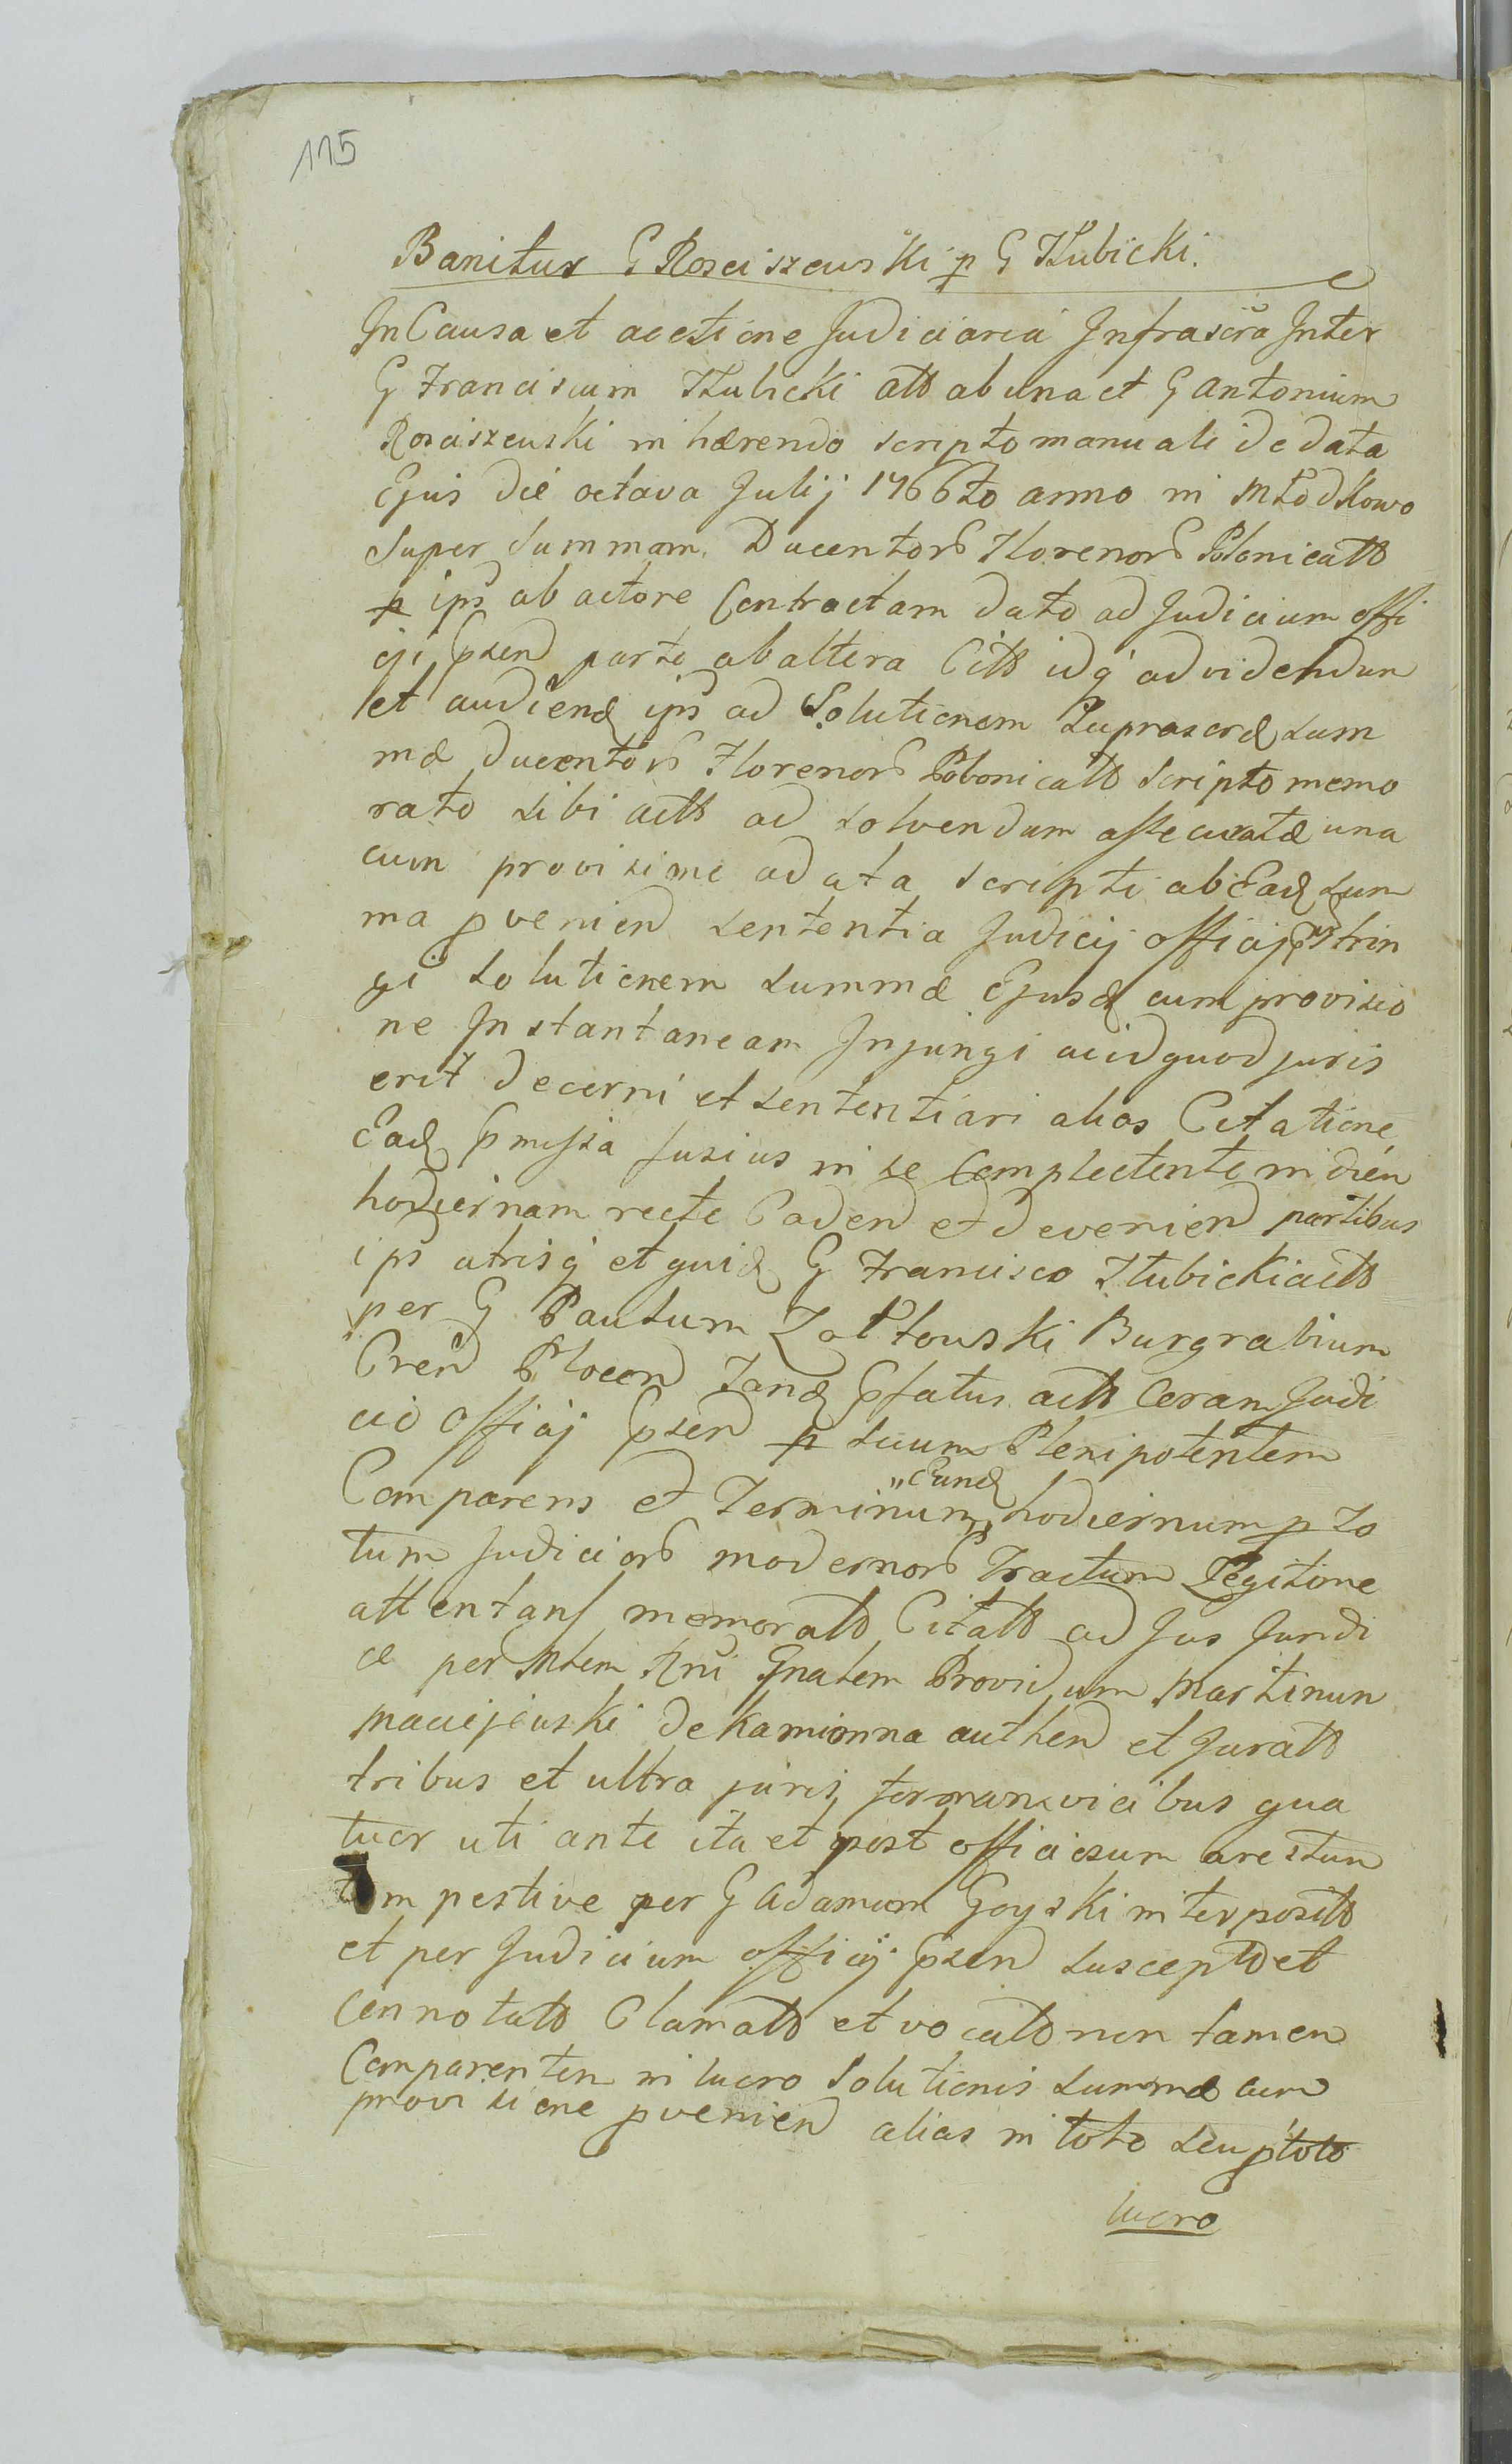 115
Banitus G Rosciszewski p G Hubicki.
In Causa et acctione Judiciaria Infrascra Inter
G Franciscum Hubicki att ab una et G Antonium
Rosciszewski in hærendo scripto manuali de data
Ejus die octava Julij 1766to anno in Młodkowo
Super Summam Ducentor Florenor Polonicatt
p ips ab actore Contractam dato ad Judicium offi
cji psen parte ab altera Citt idq ad videndum
et audiend ips ad Solutionem Suprascræ sum
mæ Ducentor Florenor Polonicatt scripto memo
rato sibi actt ad solvendum assecuratæ una
cum provisione ad ata scripti ab Ead sum
ma pvenien sententia Judicij officij pstrin
gi solutionem summæ Ejusd cum provisio
ne Instantaneam Injungi acidquod juris
erit decerni et sententiari alias Citatione
Ead pmissa fusius in se Complectente in diem
hodiernam recte Caden et devenien partibus
ips utrisq et quid G Francisco Hubicki actt
per G Paulum Zołtowski Burgrabium
Cren Plocen Tand pfatus actt Coram Judi
cio Officij psen p suum Plenipotentem
Comparens et Terminum "Eund hodiernum p to
tum Judicior modernor Tractum Legitime
attentans memoratt Citatt ad Jus Juridi
ce per Mtem Rni Gnalem Providum Martinum
Maciejewski de Kamionna authen et Juratt
tribus et ultra juris formam vicibus qua
tuor uti ante ita et post officiosum arestum
tempestive per G Adamum Goyski interpositt
et per Judicium officij psen susceptt et
connotatt Clamatt et vocatt non tamen
Comparentem in lucro Solutionis summæ cum
provisione pvenien alias in toto seu ptoto
lucro